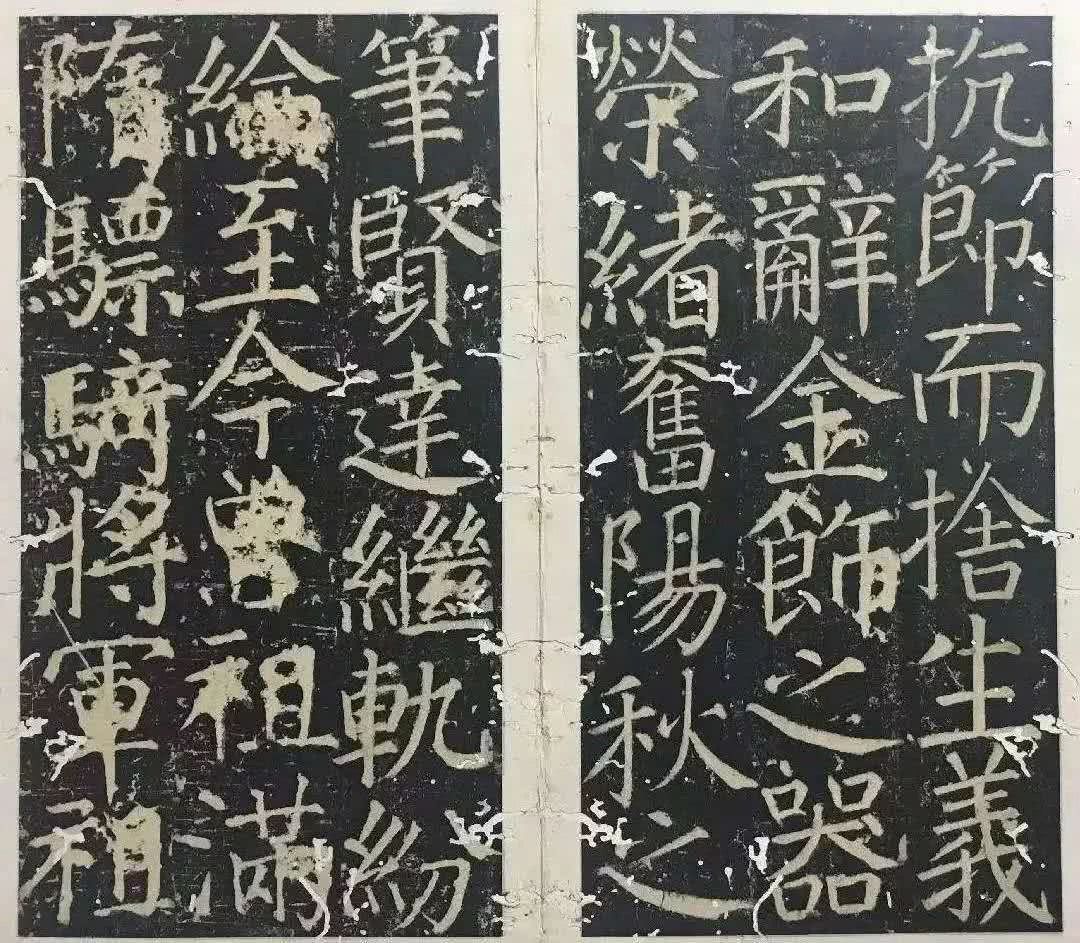 抗節而捨生義
和辭金飾之器
榮緒奮陽秋之
筆賢達繼軌紛
綸至今曾祖滿
隋驃騎將軍祖